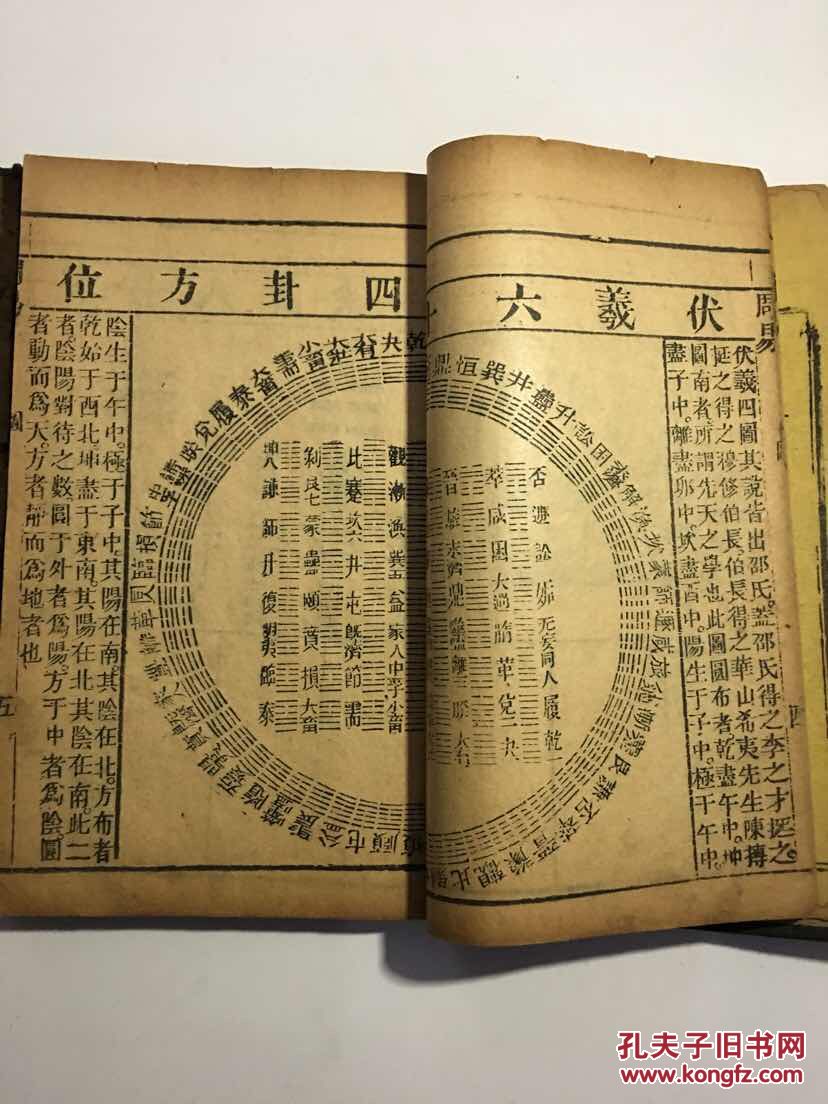 周易
伏羲六十四卦方位
伏羲四圖其說皆出邵氏蓋邵氏得之李之才挺之。
挺之得之穆修伯長伯長得之華山希夷先生陳摶
圖南者所謂先天之學也此圖圓布者乾盡午中。坤
盡子中。離盡卯中。坎盡酉中。陽生于子中。極于午中。
否 遯 訟 姤 无妄 同人 履 乾一
萃 咸 困 大過 隨 革 兌二 夬
晉 旅 未濟 鼎 噬 離三 睽 大有
觀 漸 渙 巽五 益 家人 中孚 小畜
比 蹇 坎六 井 屯 既濟 節 需
剝 艮七 蒙 蠱 頤 賁 損 大畜
坤八 謙 師 升 復 明夷 臨 泰
恒 巽 井 蠱 升 訟 困
解 渙
乾 夬 大有 大壯 小畜 需 大畜 泰 履 兌 睽
陰生于午中。極于子中。其陽在南。其陰在北。方布者
乾始于西北。坤盡于東南。其陽在北其陰在南。此二
者。陰陽對待之數。圓于外者爲陽。方于中者爲陰。圓
者動而爲天。方者靜而爲地者也
圖
五
孔夫子旧书网
www.kongfz.com